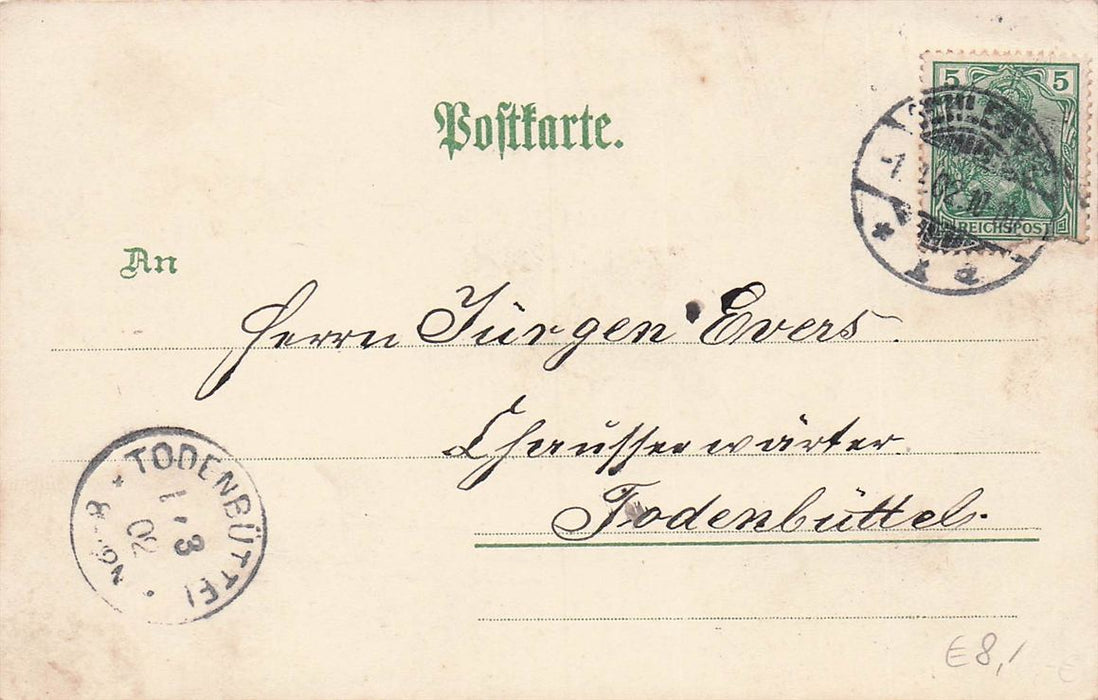 Postkarte.
5 5
REICHSPOST
An
Herrn Jürgen Evers.
Chausseewärter.
Todenbüttel.
* TODENBÜTTEL *
1/3
02
6-8N
€8,